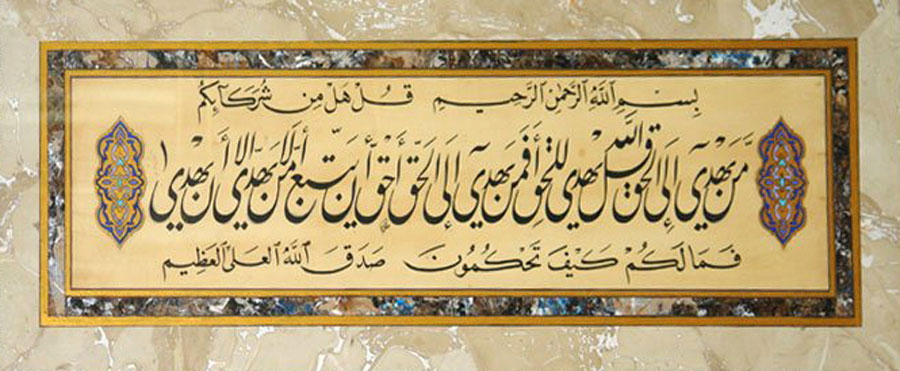 بِسْمِ ٱللَّهِ ٱلرَّحْمَٰنِ ٱلرَّحِيمِ قُلْ هَلْ مِن شُرَكَآئِكُم
مَّن يَهْدِىٓ إِلَى ٱلْحَقِّ قُلِ ٱللَّهُ يَهْدِى لِلْحَقِّ أَفَمَن يَهْدِىٓ إِلَى ٱلْحَقِّ أَحَقُّ أَن يُتَّبَعَ أَمَّن لَّا يَهِدِّىٓ إِلَّآ أَن يُهْدَىٰ
فَمَا لَكُمْ كَيْفَ تَحْكُمُونَ صَدَقَ ٱللَّهُ ٱلْعَلِىُّ ٱلْعَظِيم